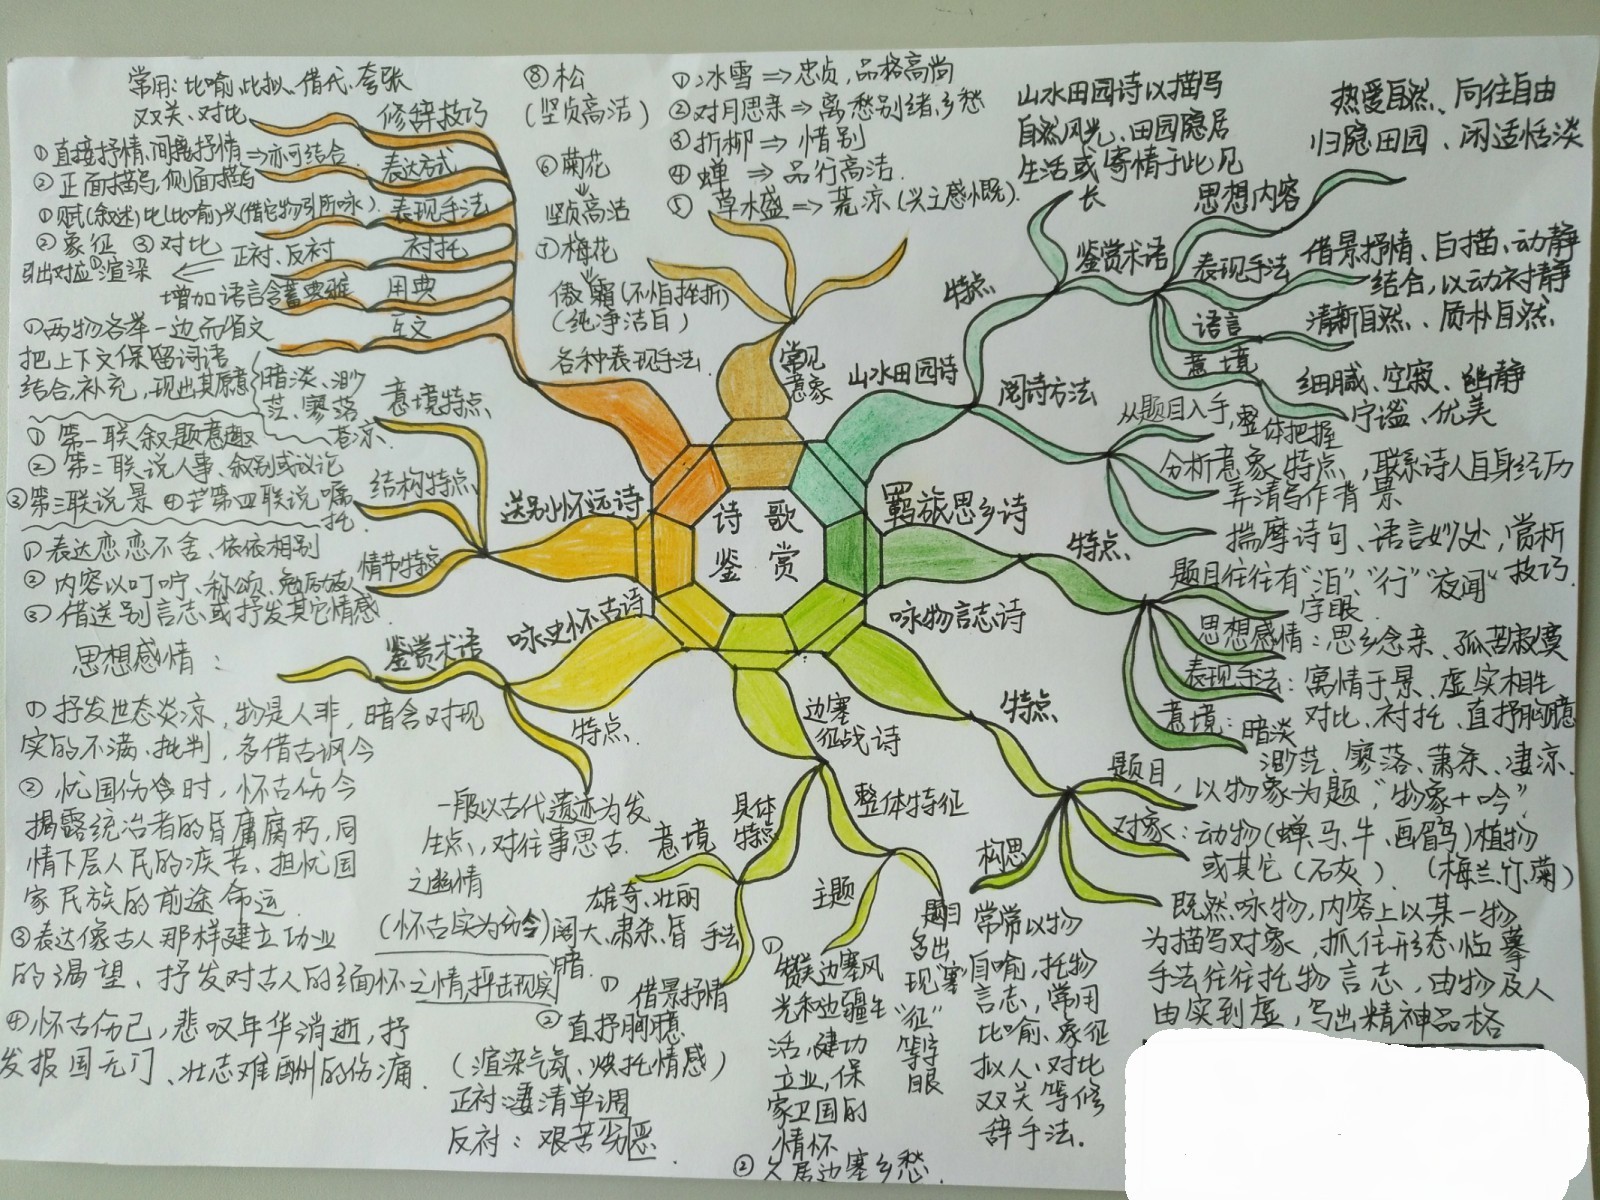 诗歌
鉴赏
常用:比喻、比拟、借代、夸张
双关、对比
修辞技巧
①直接抒情、间接抒情⇒亦可结合
②正面描写,侧面描写
表达方式
①赋(叙述)比(比喻)兴(借它物引所咏).
②象征 ③对比
表现手法
正衬、反衬
衬托
引出对应①渲染
增加语言含蓄典雅
用典
①两物各举一边而省文
把上下文保留词语
结合,补充,现出其原意
互文
各种表现手法
⑧松
(坚贞高洁)
⑥菊花
坚贞高洁
⑦梅花
傲霜(不怕挫折)
(纯净洁白)
①冰雪⇒忠贞,品格高尚
②对月思亲⇒离愁别绪、乡愁
③折柳⇒惜别
④蝉⇒品行高洁.
⑤草木盛⇒荒凉(兴亡感慨).
常见
意象
山水田园诗
特点
山水田园诗以描写
自然风光、田园隐居
生活或寄情于此见
长
鉴赏术语
思想内容
热爱自然、向往自由
归隐田园、闲适恬淡
表现手法
借景抒情、白描、动静
结合,以动衬静
语言
清新自然、质朴自然
意境
细腻、空寂、幽静
宁谧、优美
阅诗方法
从题目入手,整体把握
分析意象特点,联系诗人自身经历
弄清写作背景
揣摩诗句、语言妙处,赏析
技巧.
羁旅思乡诗
特点
题目往往有"泊"、"行""夜闻"
字眼
思想感情:思乡念亲、孤苦寂寞
表现手法:寓情于景、虚实相生
对比、衬托、直抒胸臆
意境:暗淡
渺茫、寥落、萧杀、凄凉.
咏物言志诗
特点
题目,以物象为题,"物象+吟"
对象:动物(蝉、马、牛、画眉鸟)植物
或其它(石灰).(梅兰竹菊)
既然咏物,内容上以某一物
为描写对象,抓住形态临摹
手法往往托物言志,由物及人
由实到虚,写出精神品格
构思
常常以物
自喻,托物
言志,常用
比喻、象征
拟人、对比
双关等修
辞手法.
边塞
征战诗
整体特征
题目
多出
现"塞"
"征"
等字
眼
主题
光和边疆生
活,建功
立业,保
家卫国的
情怀
②久居边塞乡愁.
具体
特点
意境
雄奇、壮丽
阔大、肃杀、昏
暗.
手法
①借景抒情
②直抒胸臆
(渲染气氛、烘托情感)
正衬:凄清单调
反衬:艰苦劣恶.
咏史怀古诗
特点
一般以古代遗迹为发
生点,对往事思古
之幽情
(怀古实为伤今)
鉴赏术语
思想感情:
①抒发世态炎凉,物是人非,暗含对现
实的不满、批判,多借古讽今
②忧国伤时,怀古伤今
揭露统治者的昏庸腐朽,同
情下层人民的疾苦、担忧国
家民族的前途命运.
③表达像古人那样建立功业
的渴望、抒发对古人的缅怀之情,抨击现实
④怀古伤己,悲叹年华消逝,抒
发报国无门、壮志难酬的伤痛.
送别怀远诗
意境特点
暗淡、渺
茫、寥落
苍凉.
结构特点
①第一联叙题意趣
②第二联说人事、叙别或议论
③第三联说景 ④第四联说嘱
托
情节特点
①表达恋恋不舍、依依相别
②内容以叮咛、称颂、勉励友人
③借送别言志或抒发其它情感.